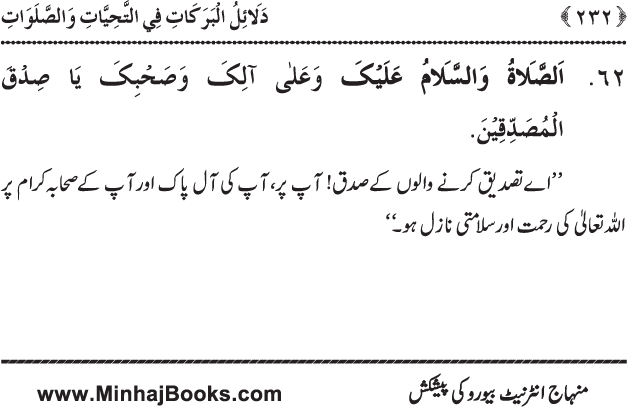 ﴿٢٣٢﴾ دَلَائِلُ الْبَرَكَاتِ فِي التَّحِيَّاتِ وَالصَّلَوَاتِ
٦٢. اَلصَّلَاةُ وَالسَّلَامُ عَلَيْکَ وَعَلٰی آلِکَ وَصَحْبِکَ يَا صِدْقَ
الْمُصَدِّقِيْنَ.
’’اے تصدیق کرنے والوں کے صدق! آپ پر، آپ کی آل پاک اور آپ کے صحابہ کرام پر
اللہ تعالیٰ کی رحمت اور سلامتی نازل ہو۔‘‘
منہاج انٹرنیٹ بیورو کی پیشکش www.MinhajBooks.com